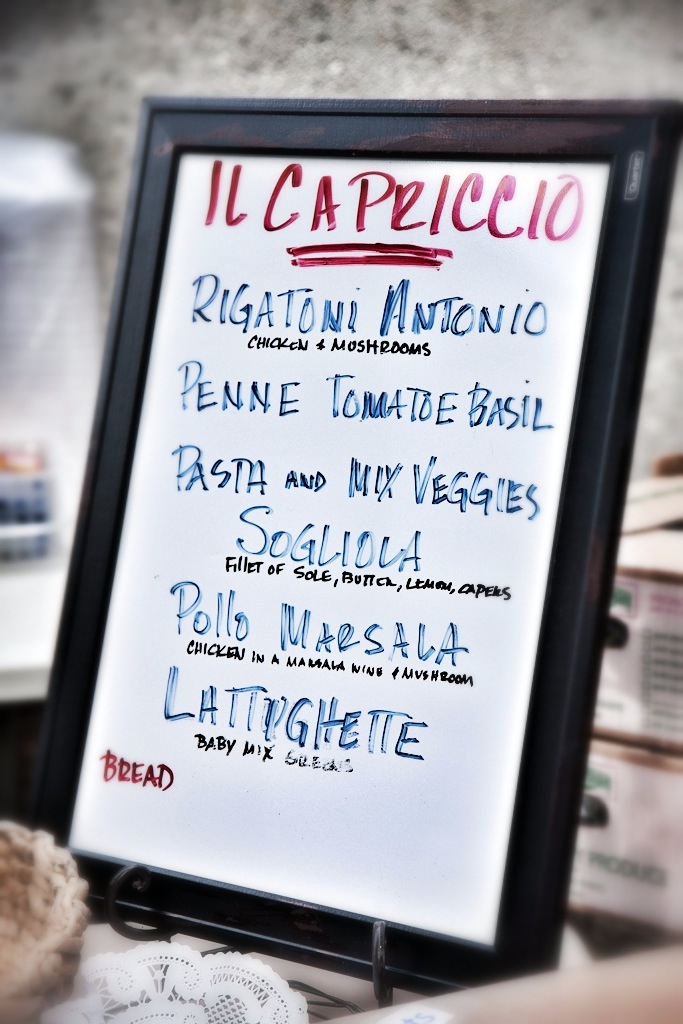 IL CAPRICCIO
RIGATONI ANTONIO
CHICKEN & MUSHROOMS
PENNE TOMATOE BASIL
PASTA AND MIX VEGGIES
SOGLIOLA
FILLET OF SOLE, BUTTER, LEMON, CAPERS
Pollo MARSALA
CHICKEN IN A MARSALA WINE & MUSHROOM
LATTUGHETTE
BABY MIX GREENS
BREAD
PRODUCE